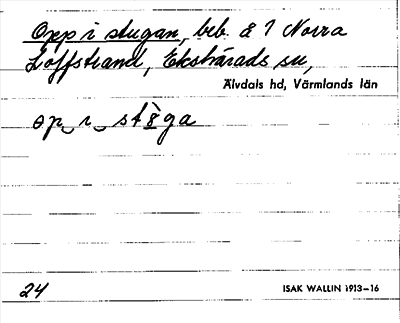 Opp i stugan, beb. å 1 Norra
Loffstrand, Ekshärads sn,
Älvdals hd, Värmlands län
op i st
24
ISAK WALLIN 1913–16